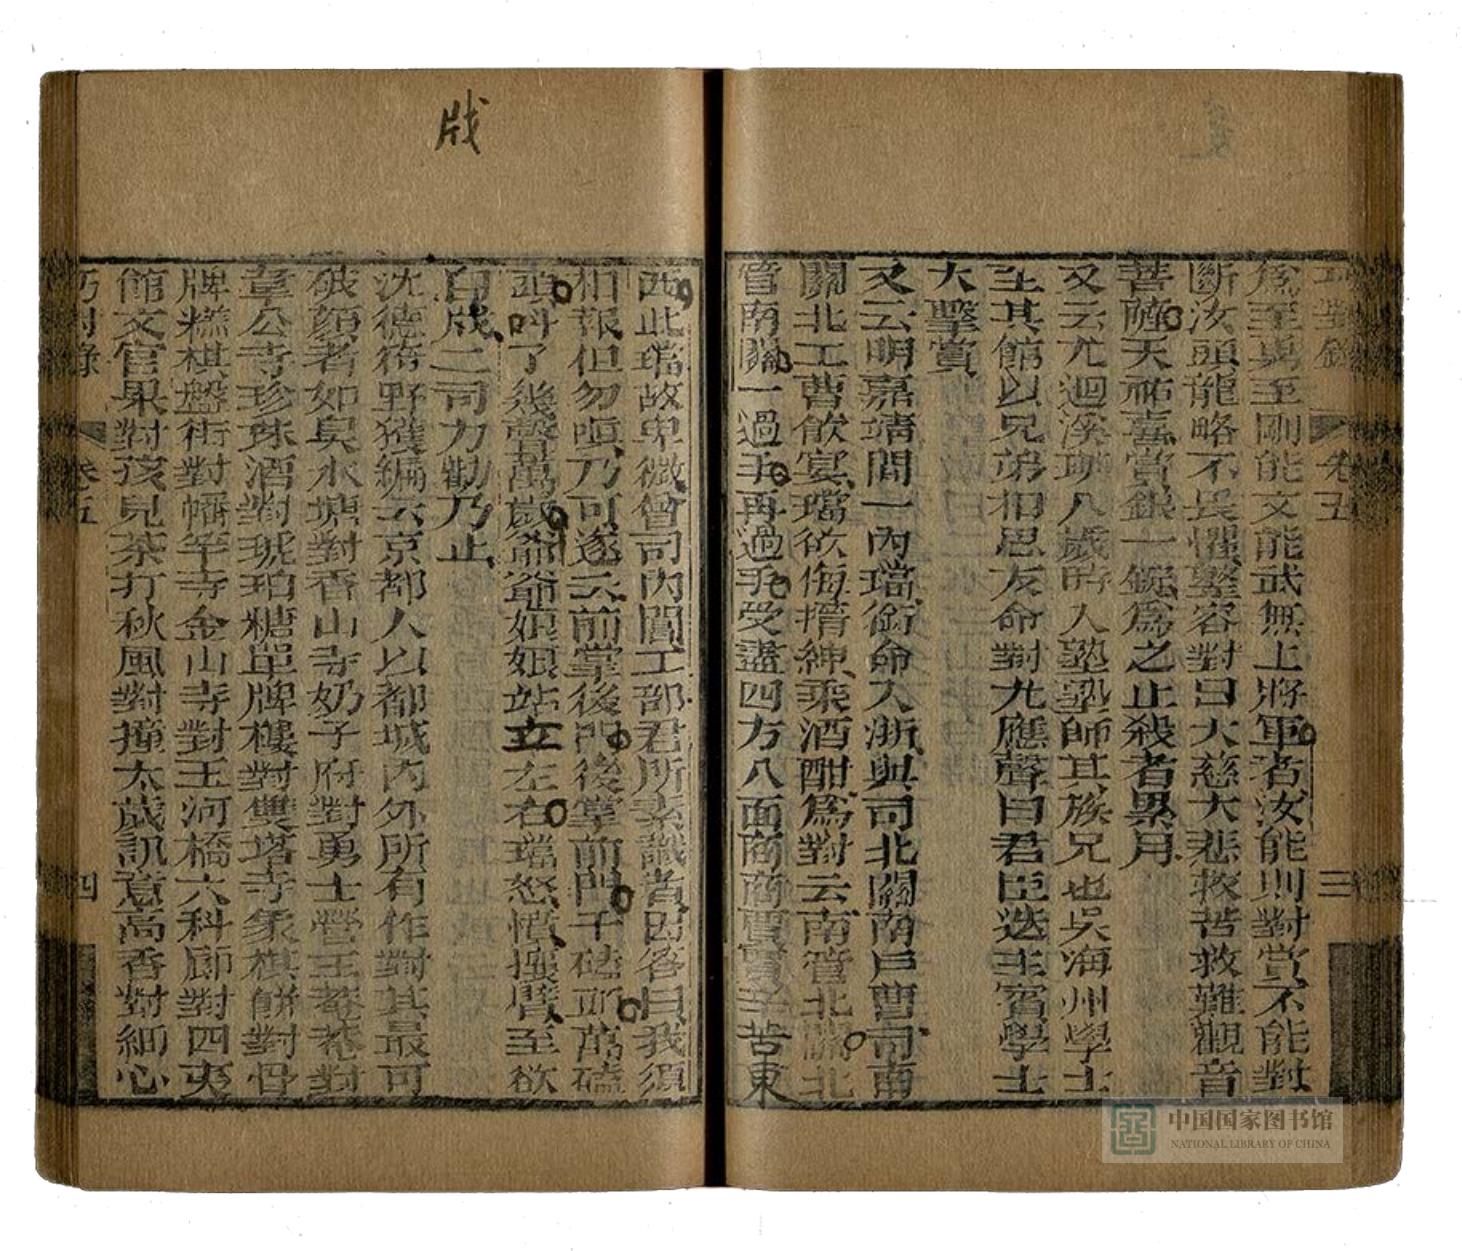 爲至勇至剛能文能武無上將軍者汝能則對賞不能對
斷汝頭龍略不畏懼整容對曰大慈大悲救苦救難觀音
菩薩天祐喜賞銀一錠爲之止殺者累月
又云尤迴溪瑛八歲時入塾塾師其族兄也吳海州學士
至其館以兄弟相思友命對尤應聲曰君臣迭主賓學士
大擊賞
又云明嘉靖間一內璫銜命入浙與司北關南戶曹司南
關北工曹飲宴璫欲侮搢紳乘酒酣爲對云南管北關北
管南關一過手再過手受盡四方八面商商賈賈辛苦東
西此璫故卑微曾司內閽工部君所素識者因答曰我須
相報但勿嗔乃可遂云前掌後門後掌前門千磕頭萬磕
頭叫了幾聲萬歲爺爺娘娘站立左右璫怒憤攘臂至欲
自戕二司力勸乃止
沈德符野獲編云京都人以都城內外所有作對其最可
破顏者如臭水塘對香山寺奶子府對勇士營王菴菴對
章公寺珍珠酒對琥珀糖單牌樓對雙塔寺象棋餅對骨
牌糕棋盤街對幡竿寺金山寺對玉河橋六科廊對四夷
館文官果對孩兒茶打秋風對撞太歲訊意高香對細心
巧對錄
卷五
三
四
戕
中国国家图书馆
NATIONAL LIBRARY OF CHINA